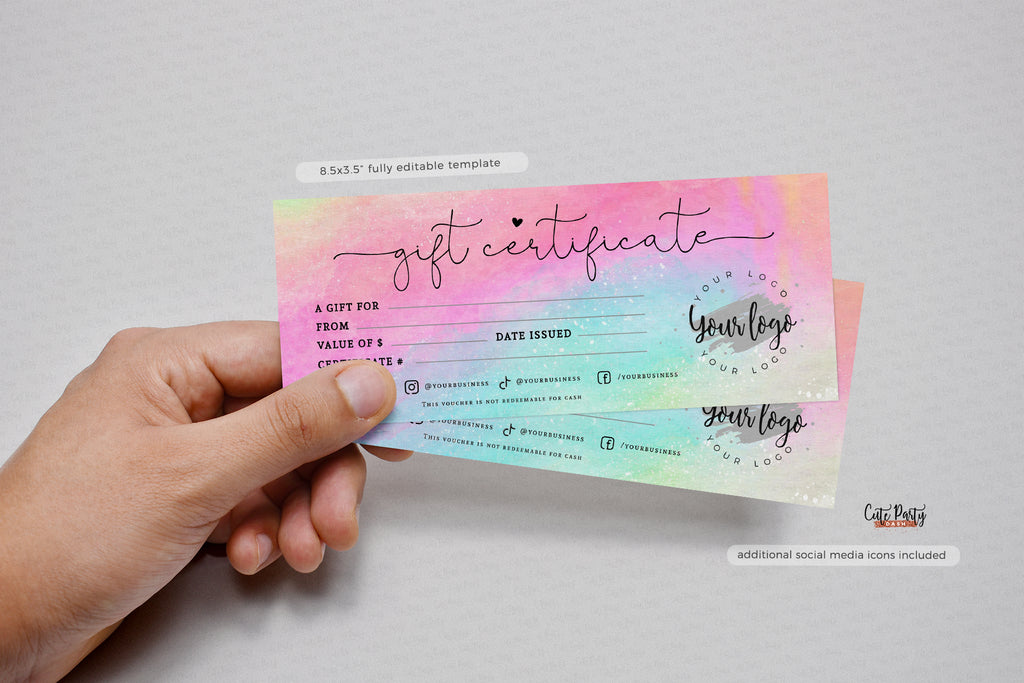 8.5x3.5" fully editable template
gift certificate
A GIFT FOR
FROM
VALUE OF $ DATE ISSUED
CERTIFICATE #
YOUR LOGO
Your logo
YOUR LOGO
@YOURBUSINESS @YOURBUSINESS /YOURBUSINESS
THIS VOUCHER IS NOT REDEEMABLE FOR CASH
Your logo
YOUR LOGO
@YOURBUSINESS @YOURBUSINESS /YOURBUSINESS
THIS VOUCHER IS NOT REDEEMABLE FOR CASH
Cute Party
DASH
additional social media icons included